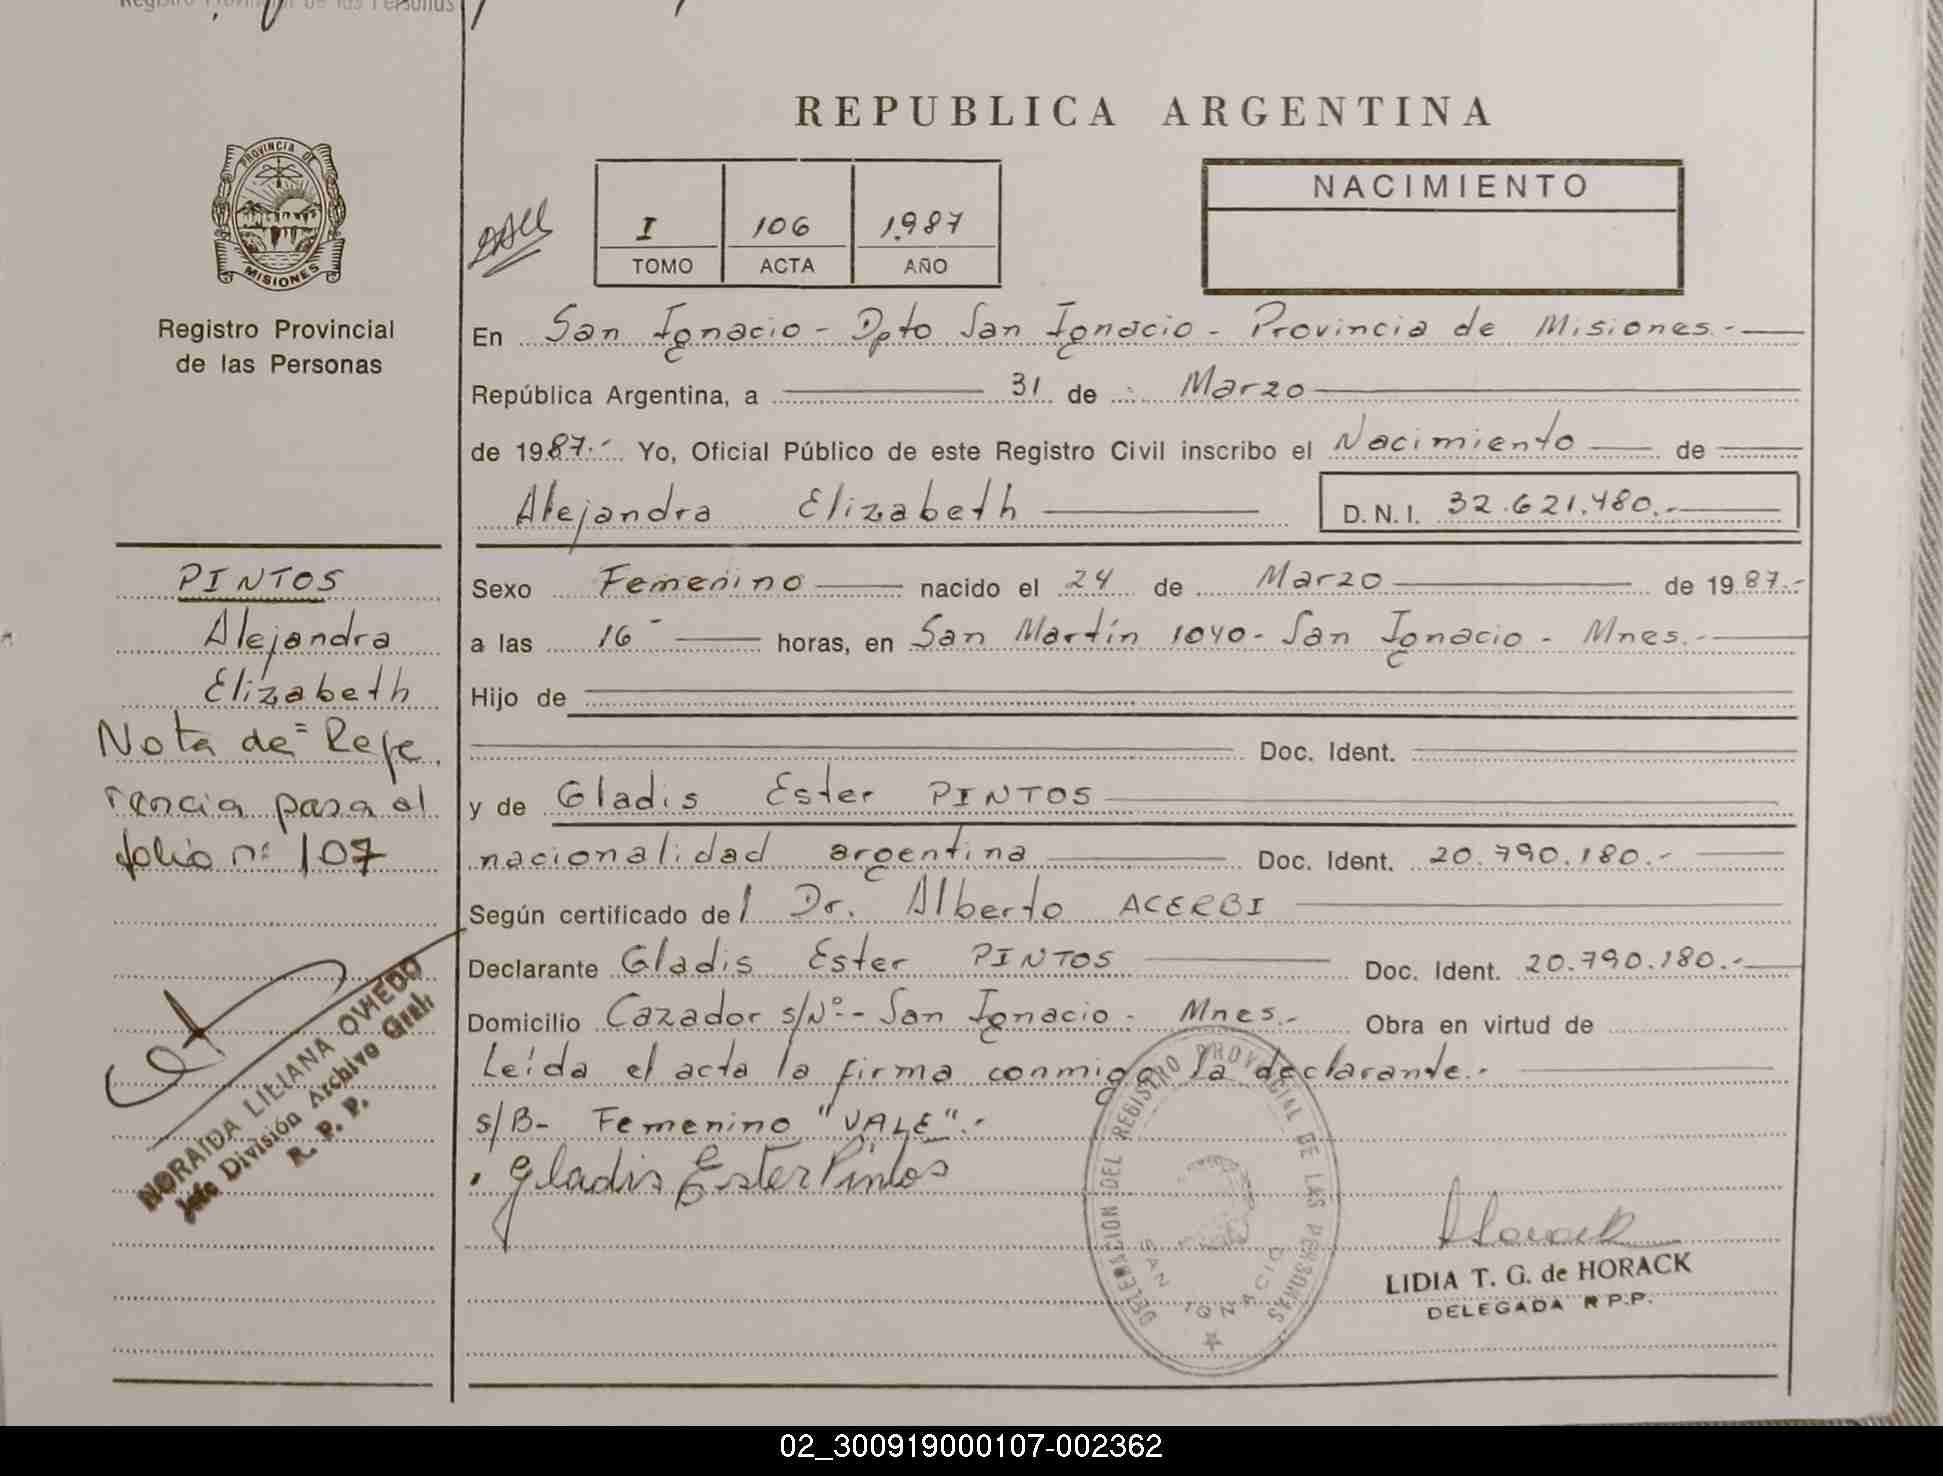 REPUBLICA ARGENTINA
PROVINCIA DE
MISIONES
Registro Provincial
de las Personas
I 106 1987
TOMO ACTA AÑO
NACIMIENTO
En San Ignacio - Dpto San Ignacio - Provincia de Misiones.-
República Argentina, a 31 de Marzo
de 1987.- Yo, Oficial Público de este Registro Civil inscribo el Nacimiento de
Alejandra Elizabeth D.N.I. 32.621.480.-
Sexo Femenino nacido el 24 de Marzo de 1987.-
a las 16 horas, en San Martín 1040 - San Ignacio - Mnes.-
Hijo de
Doc. Ident.
y de Gladis Ester PINTOS
nacionalidad argentina Doc. Ident. 20.790.180.-
Según certificado del Dr. Alberto ACERBI
Declarante Gladis Ester PINTOS Doc. Ident. 20.790.180.-
Domicilio Cazador s/Nº- San Ignacio - Mnes.- Obra en virtud de
Leída el acta la firma conmigo la declarante.-
s/B- Femenino "VALE".-
Gladis Ester Pintos
PINTOS
Alejandra
Elizabeth
Nota de Refe
rencia pasa al
folio nº 107
NORAIDA LILIANA OVIEDO
Jefe División Archivo Gral.
R. P. P.
DELEGACION DEL REGISTRO PROVINCIAL DE LAS PERSONAS
SAN IGNACIO
Horack
LIDIA T. G. de HORACK
DELEGADA R P.P.
02_300919000107-002362